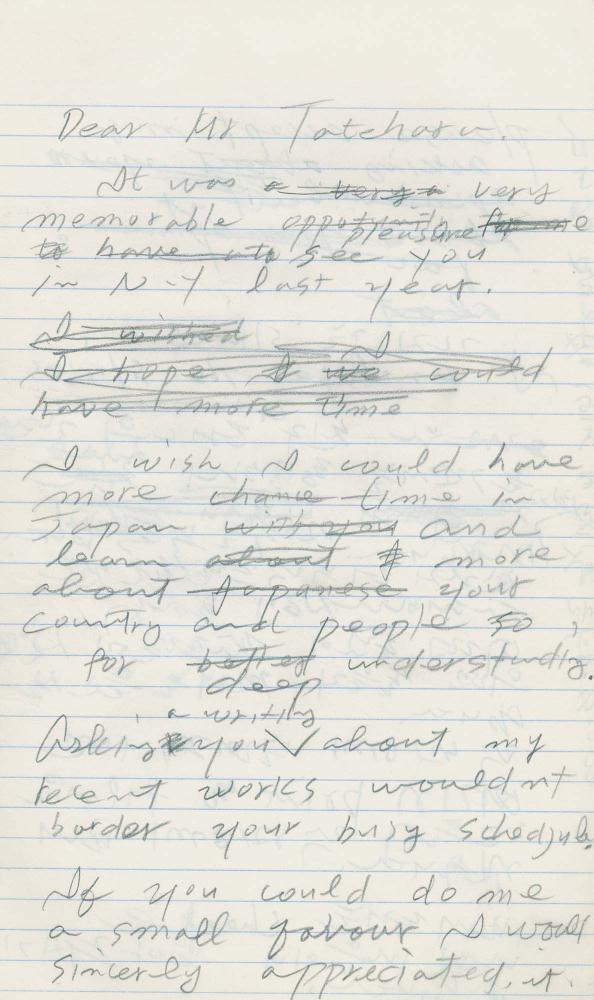 Dear Mr Tatehara.
It was a very a very
memorable opportunity for me
pleasure
to have to see you
in N-Y last year.
I wished
I
I hope I we could
have more time
I wish I could have
more chance time in
Japan with you and
learn about more
about Japanese your
country and people so,
for better understudig.
deep
a writing
Asking you about my
recent works wouldnt
border your busy schedule.
If you could do me
a small favour I would
sincerly appreciated, it.